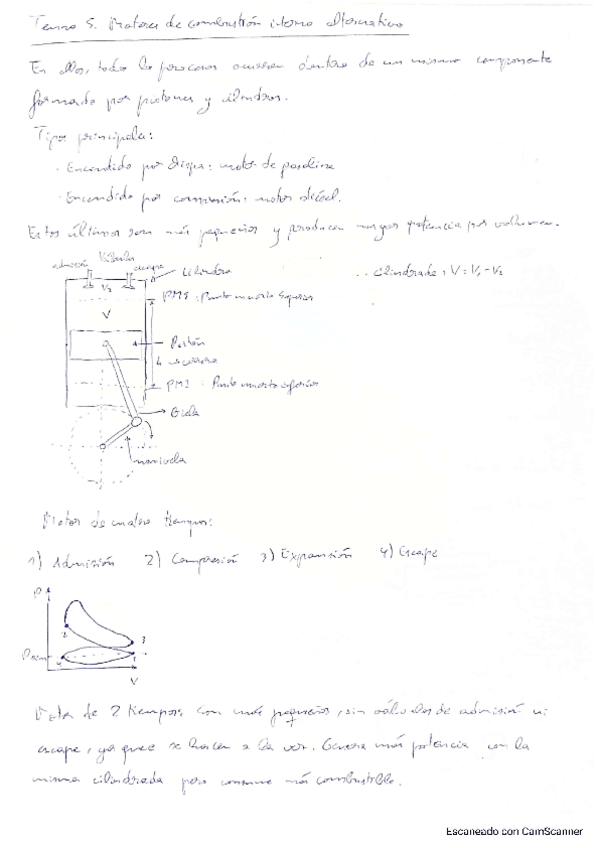 Tema 5. Motores de combustión interna alternativo
En ellos, todos los procesos ocurren dentro de un mismo componente
formado por pistones y cilindros.
Tipos principales:
· Encendido por chispa: motor de gasolina
· Encendido por compresión: motor diésel.
Estos últimos son más pequeños y producen mayor potencia por volumen.
admisión Válvulas escape
V2
Cilindro
cilindrada, V = V1 - V2
PMS: Punto muerto superior
V
Pistón
L
PMI: Punto muerto inferior
Biela
manivela
Motor de cuatro tiempos:
1) Admisión 2) Compresión 3) Expansión 4) Escape
P
2
3
4
1
V
Motor de 2 tiempos: son más pequeños, sin válvulas de admisión ni
escape, ya que se hacen a la vez. Genera más potencia con la
misma cilindrada pero consume más combustible.
Escaneado con CamScanner